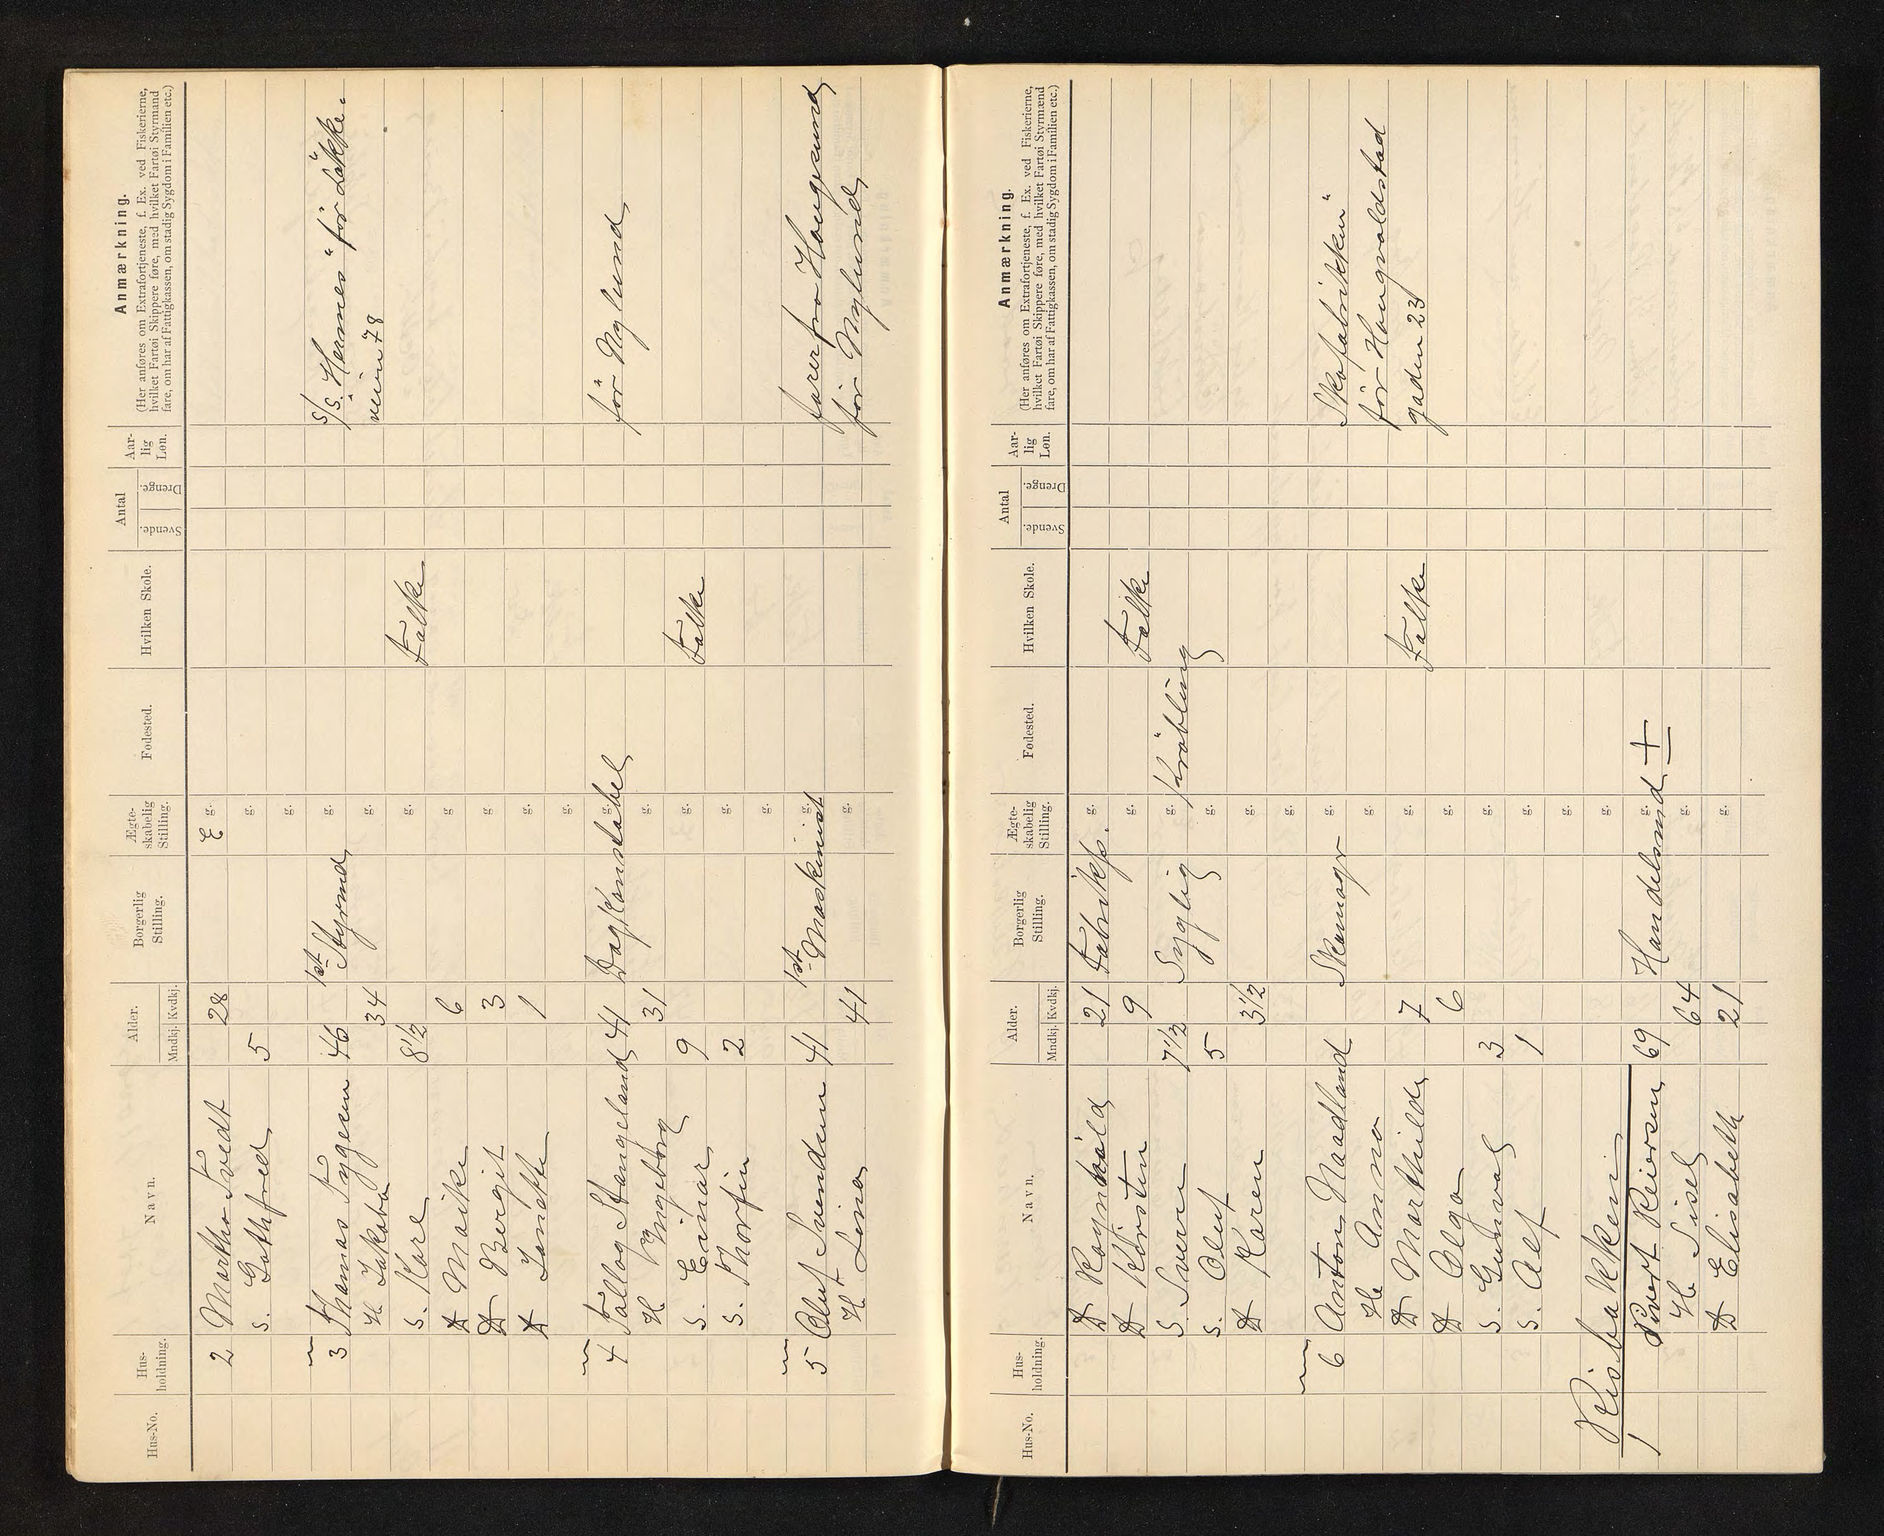 Hus-No. Hus-holdning. Navn. Alder. Mndkj. Kvdkj. Borgerlig Stilling. Ægte-skabelig Stilling. Fødested. Hvilken Skole. Antal Svende. Drenge. Aar-lig Løn. Anmærkning.
(Her anføres om Extrafortjeneste, f. Ex. ved Fiskerierne, hvilket Fartøi Skippere føre, med hvilket Fartøi Styrmand fare, om har af Fattigkassen, om stadig Sygdom i Familien etc.)
2 Martha Tvedt 28 E g.
s. Gothfred 5 g.
g.
3 Thomas Tygesen 46 1st Styrmd g. s/s. "Hermes" för Løkke-
H Jakoba 34 g. veien 78
s. Kare 8 1/2 g. Folke
D Maike 6 g
D Bergit 3 g
D Janette 1 g.
g.
4 Tollag Stangeland 41 Dag Konstabel g. för Nylund
H Ingeborg 31 g.
s. Einar 9 g. Folke
s. Thorfin 2 g.
g.
5 Oluf Svendsen 41 1st Maskinist g. farer fra Haugesund
H Lina 41 g. för Nylund
Hus-No. Hus-holdning. Navn. Alder. Mndkj. Kvdkj. Borgerlig Stilling. Ægte-skabelig Stilling. Fødested. Hvilken Skole. Antal Svende. Drenge. Aar-lig Løn. Anmærkning.
(Her anføres om Extrafortjeneste, f. Ex. ved Fiskerierne, hvilket Fartøi Skippere føre, med hvilket Fartøi Styrmænd fare, om har af Fattigkassen, om stadig Sygdom i Familien etc.)
D Ragnhild 21 Fabrikp. g.
D Kirsten 9 g. Folke
S. Sverre 7 1/2 Syglig g. Kröbling
s. Oluf 5 g.
D Karen 3 1/2 g.
g.
6 Anton Naadland Skomagr g. Skofabrikken"
H Anna g. för Haugvaldstad
D Marthilde 7 g. Folke gaden 23
D Olga 6 g.
s. Gunval 3 g.
s. Alf 1 g.
g.
Risbakken g.
1 Sivert Reiersen 69 Handelsmd g. +
H Sisel 64 g.
D Elisabeth 21 g.